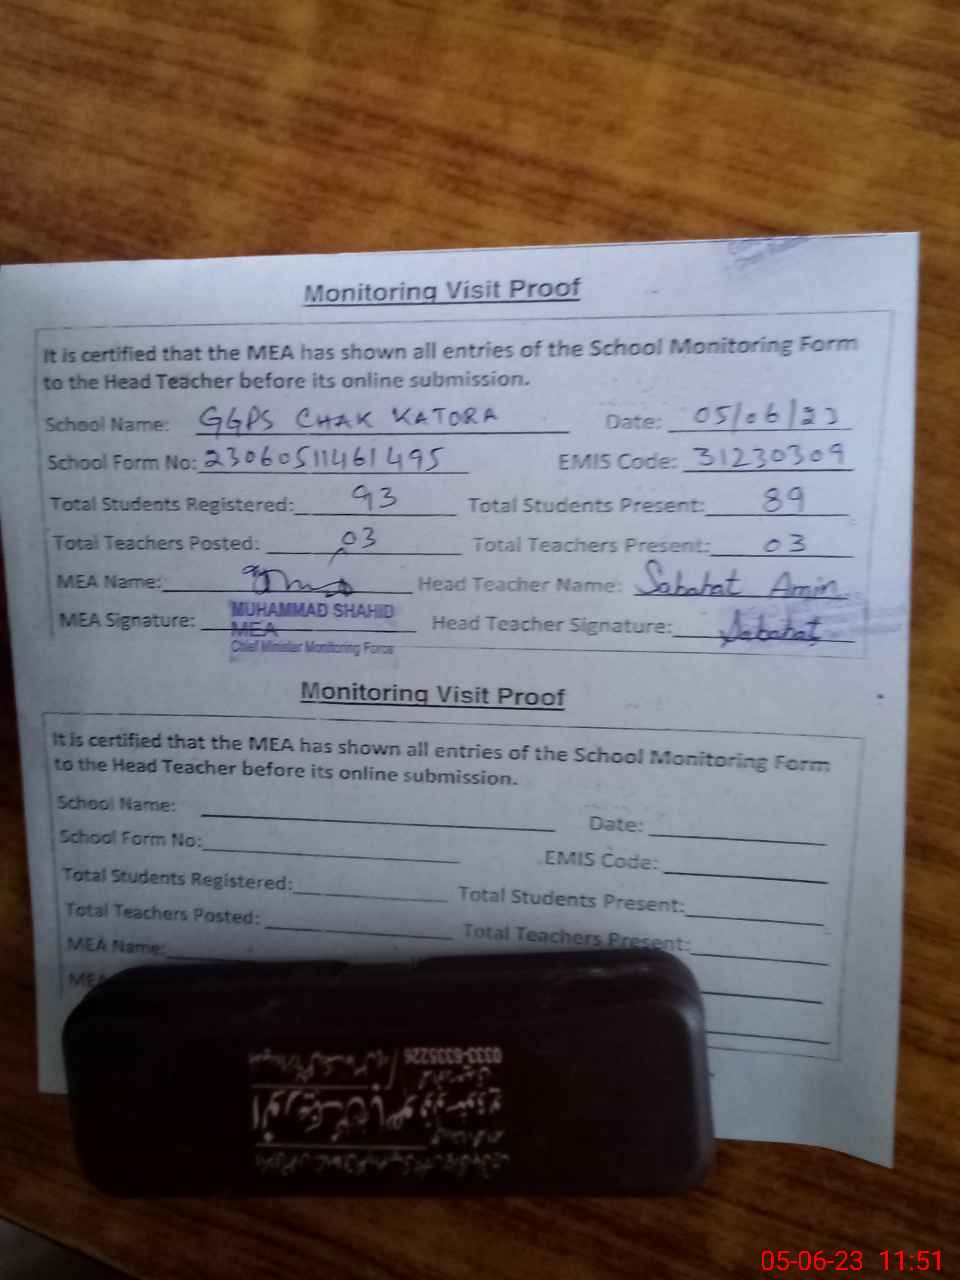 Monitoring Visit Proof
It is certified that the MEA has shown all entries of the School Monitoring Form
to the Head Teacher before its online submission.
School Name: GGPS CHAK KATORA Date: 05/06/23
School Form No: 23060511461495 EMIS Code: 31230309
Total Students Registered: 93 Total Students Present: 89
Total Teachers Posted: 03 Total Teachers Present: 03
MEA Name: Head Teacher Name: Sabahat Amin
MEA Signature: MUHAMMAD SHAHID Head Teacher Signature: Sabahat
MEA
Chief Minister Monitoring Force
Monitoring Visit Proof
It is certified that the MEA has shown all entries of the School Monitoring Form
to the Head Teacher before its online submission.
School Name: Date:
School Form No: EMIS Code:
Total Students Registered: Total Students Present:
Total Teachers Posted: Total Teachers Present:
MEA Name:
MEA
0333-6335226
05-06-23 11:51